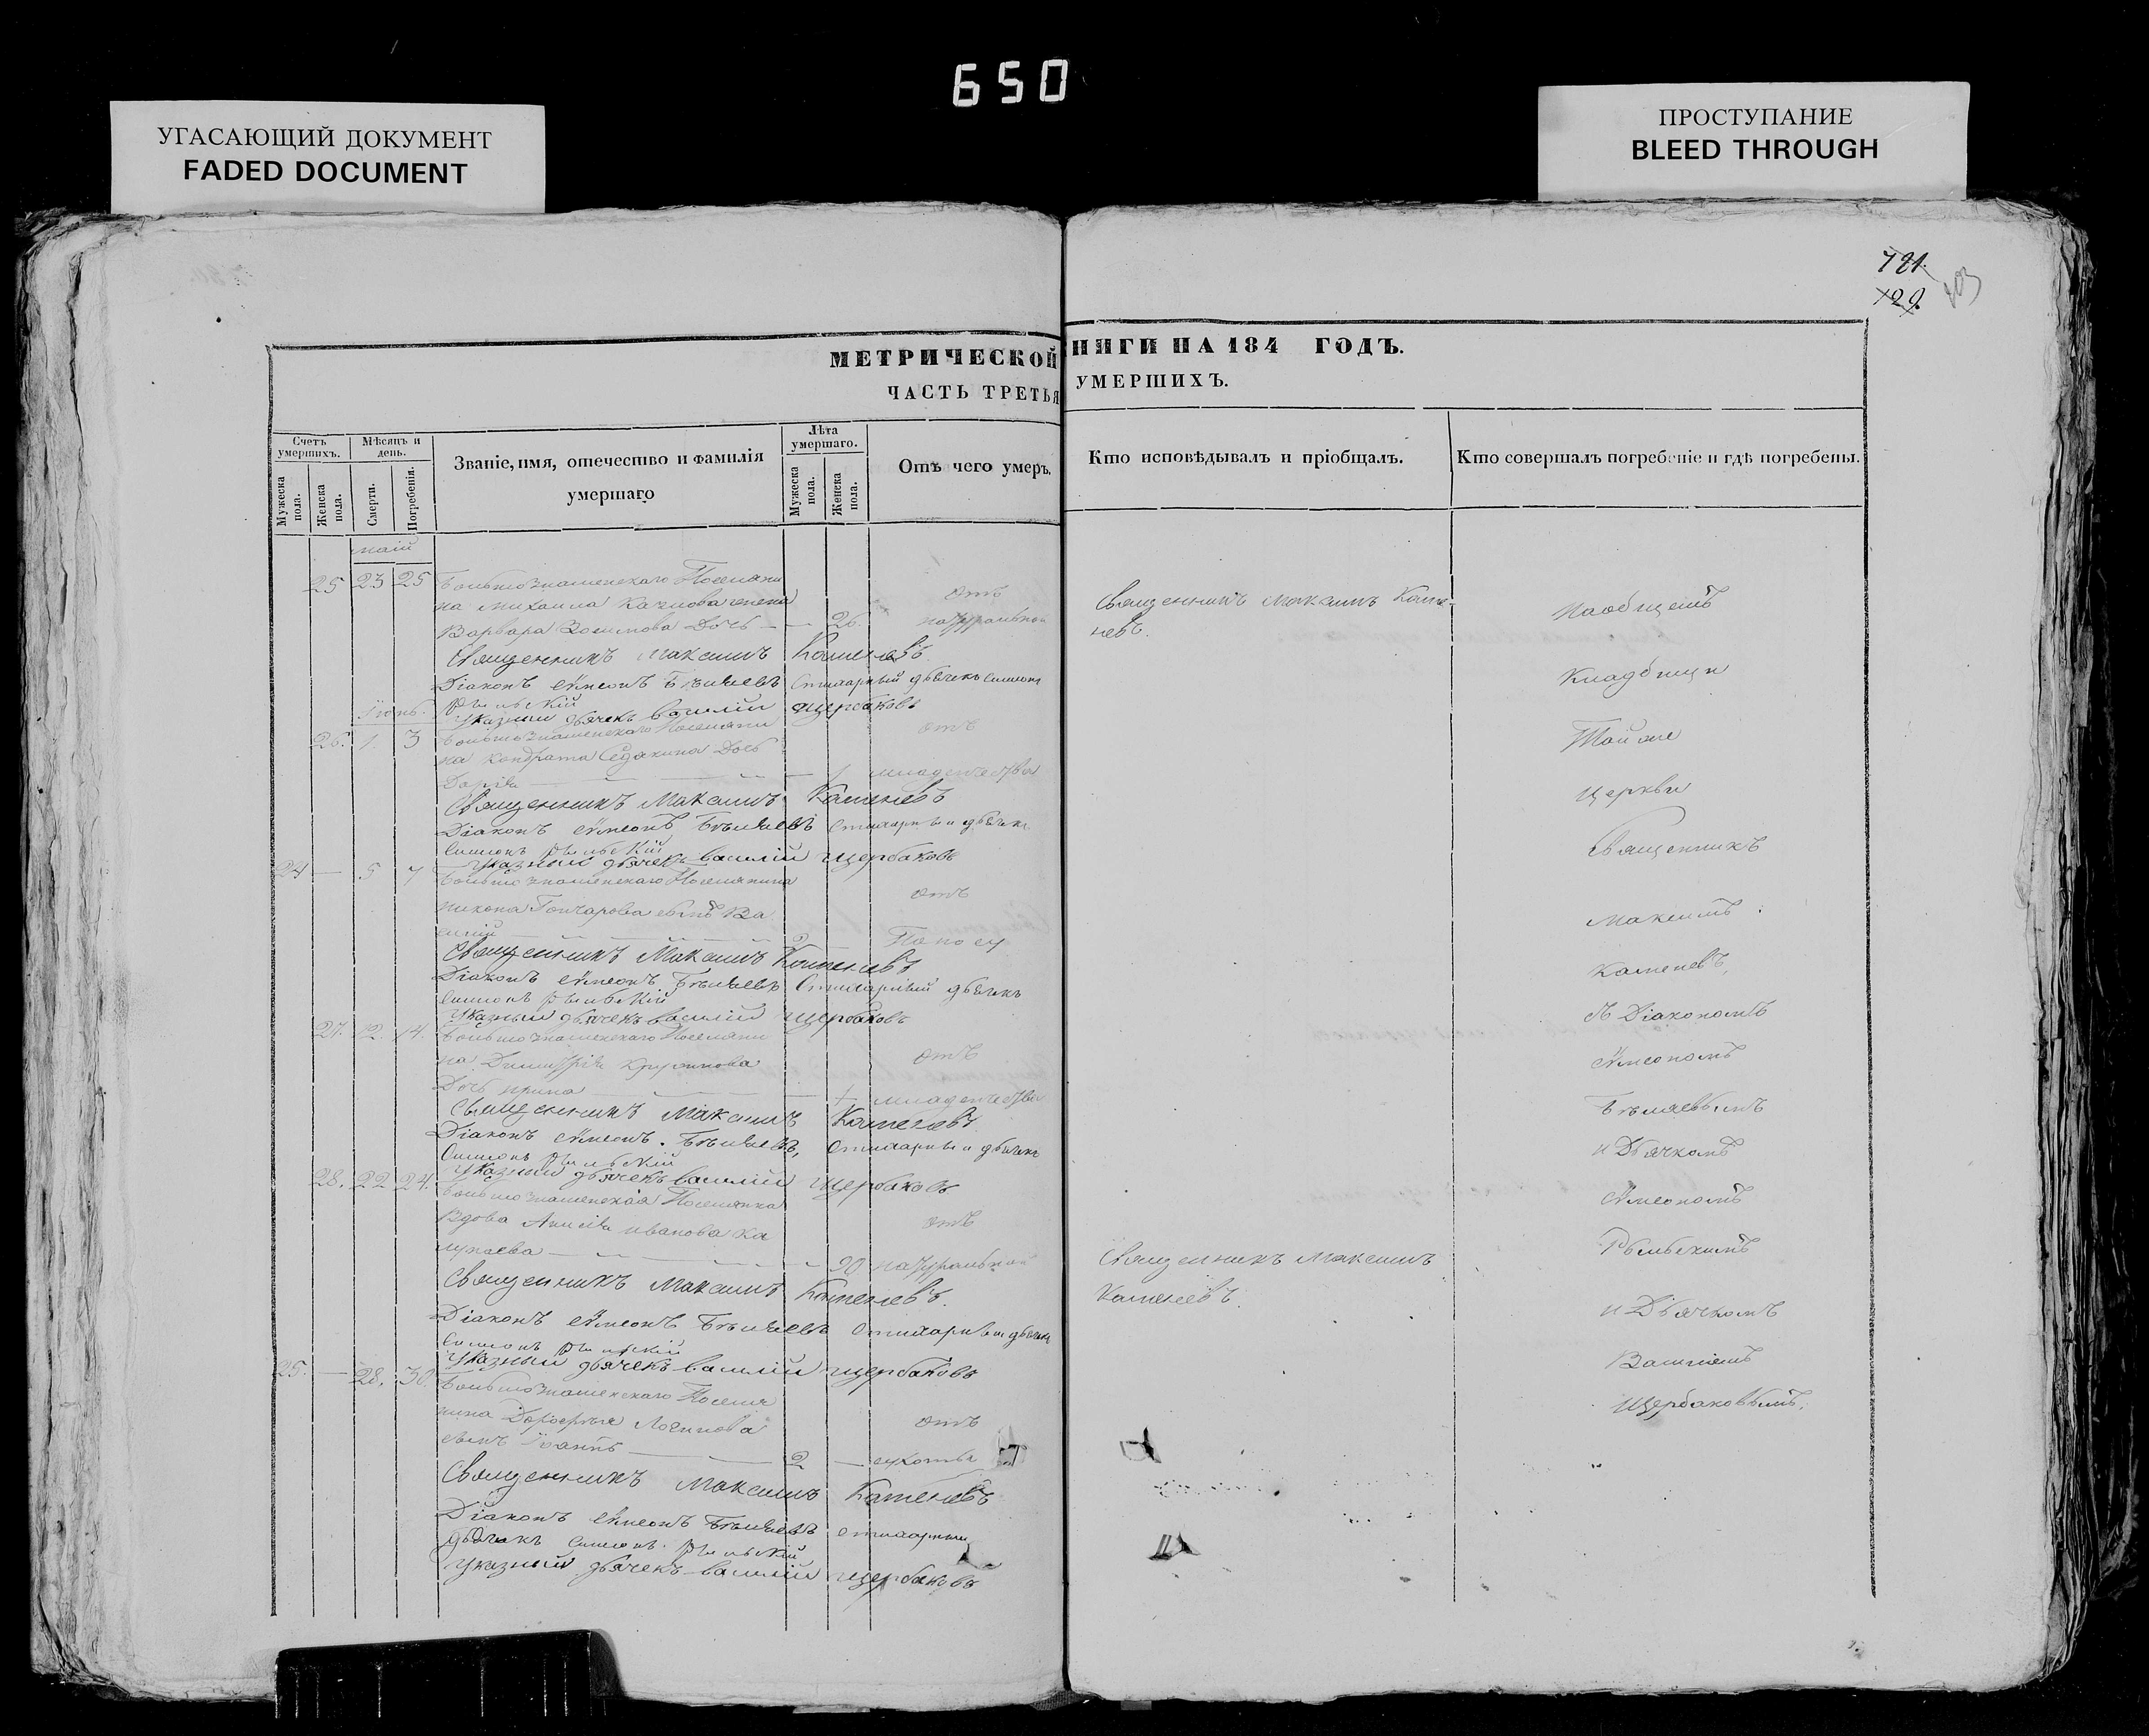 650
УГАСАЮЩИЙ ДОКУМЕНТ
FADED DOCUMENT
ПРОСТУПАНИЕ
BLEED THROUGH
781.
129.
МЕТРИЧЕСКОЙ
ЧАСТЬ ТРЕТЬЯ
Счетъ умершихъ.
Мѣсяцъ и день.
Званіе, имя, отечество и фамилія
умершаго
Лѣта умершаго.
Отъ чего умеръ.
Мужеска пола.
Женска пола.
Смерти.
Погребенія.
Мужеска пола.
Женска пола.
маій
25 23 25 Большознаменскаго Поселяни
на Михаила жена отъ
Варвара дочь — — 26. натуральной
Священникъ Максимъ Каменевъ
Діаконъ Сѵмеонъ Бѣляевъ Стихарный дьячекъ Симеонъ
Рыльскій
Указный дьячекъ Василій Щербаковъ
Іюнь.
26. 1. 3 Большознаменскаго Поселяни отъ
на Кондрата Седакина дочь
Дарія — 1 младенчества
Священникъ Максимъ Каменевъ
Діаконъ Сѵмеонъ Бѣляевъ Стихарный дьячекъ
Симеонъ Рыльскій
Указный дьячекъ Василій Щербаковъ
24 — 5 7 Большознаменскаго Поселянина отъ
Никона Гончарова сынъ Ва
силій — 2 Поносу
Священникъ Максимъ Каменевъ
Діаконъ Сѵмеонъ Бѣляевъ Стихарный дьячекъ
Симеонъ Рыльскій
Указный дьячекъ Василій Щербаковъ
27. 12. 14. Большознаменскаго Поселяни
на Димитрія отъ
Дочь Ирина — младенчества
Священникъ Максимъ Каменевъ
Діаконъ Сѵмеонъ Бѣляевъ, Стихарный дьячекъ
Симеонъ Рыльскій
Указный дьячекъ Василій Щербаковъ
28. 22 24. Большознаменская Поселянка
Вдова Анисія Иванова Ка отъ
— 90 натуральной
Священникъ Максимъ Каменевъ.
Діаконъ Сѵмеонъ Бѣляевъ Стихарный дьячекъ
Симеонъ Рыльскій
Указный дьячекъ Василій Щербаковъ
25. — 28. 30. Большознаменскаго Поселя
нина Дорофея Логинова отъ
сынъ Іоаннъ — 2 — сухоты
Священникъ Максимъ Каменевъ
Діаконъ Сѵмеонъ Бѣляевъ Стихарный
дьячекъ Симеонъ Рыльскій
Указный дьячекъ Василій Щербаковъ
НИГИ НА 184 ГОДЪ.
УМЕРШИХЪ.
Кто исповѣдывалъ и пріобщалъ.
Кто совершалъ погребеніе и гдѣ погребены.
Священникъ Максимъ Каме-
невъ.
Священникъ Максимъ
Каменевъ.
На общемъ
Кладбищи
Той же
Церкви
Священникъ
Максимъ
Каменевъ,
съ Діакономъ
Сѵмеономъ
Бѣляевымъ
и Дьячкомъ
Сѵмеономъ
Рыльскимъ
и Дьячкомъ
Василіемъ
Щербаковымъ.